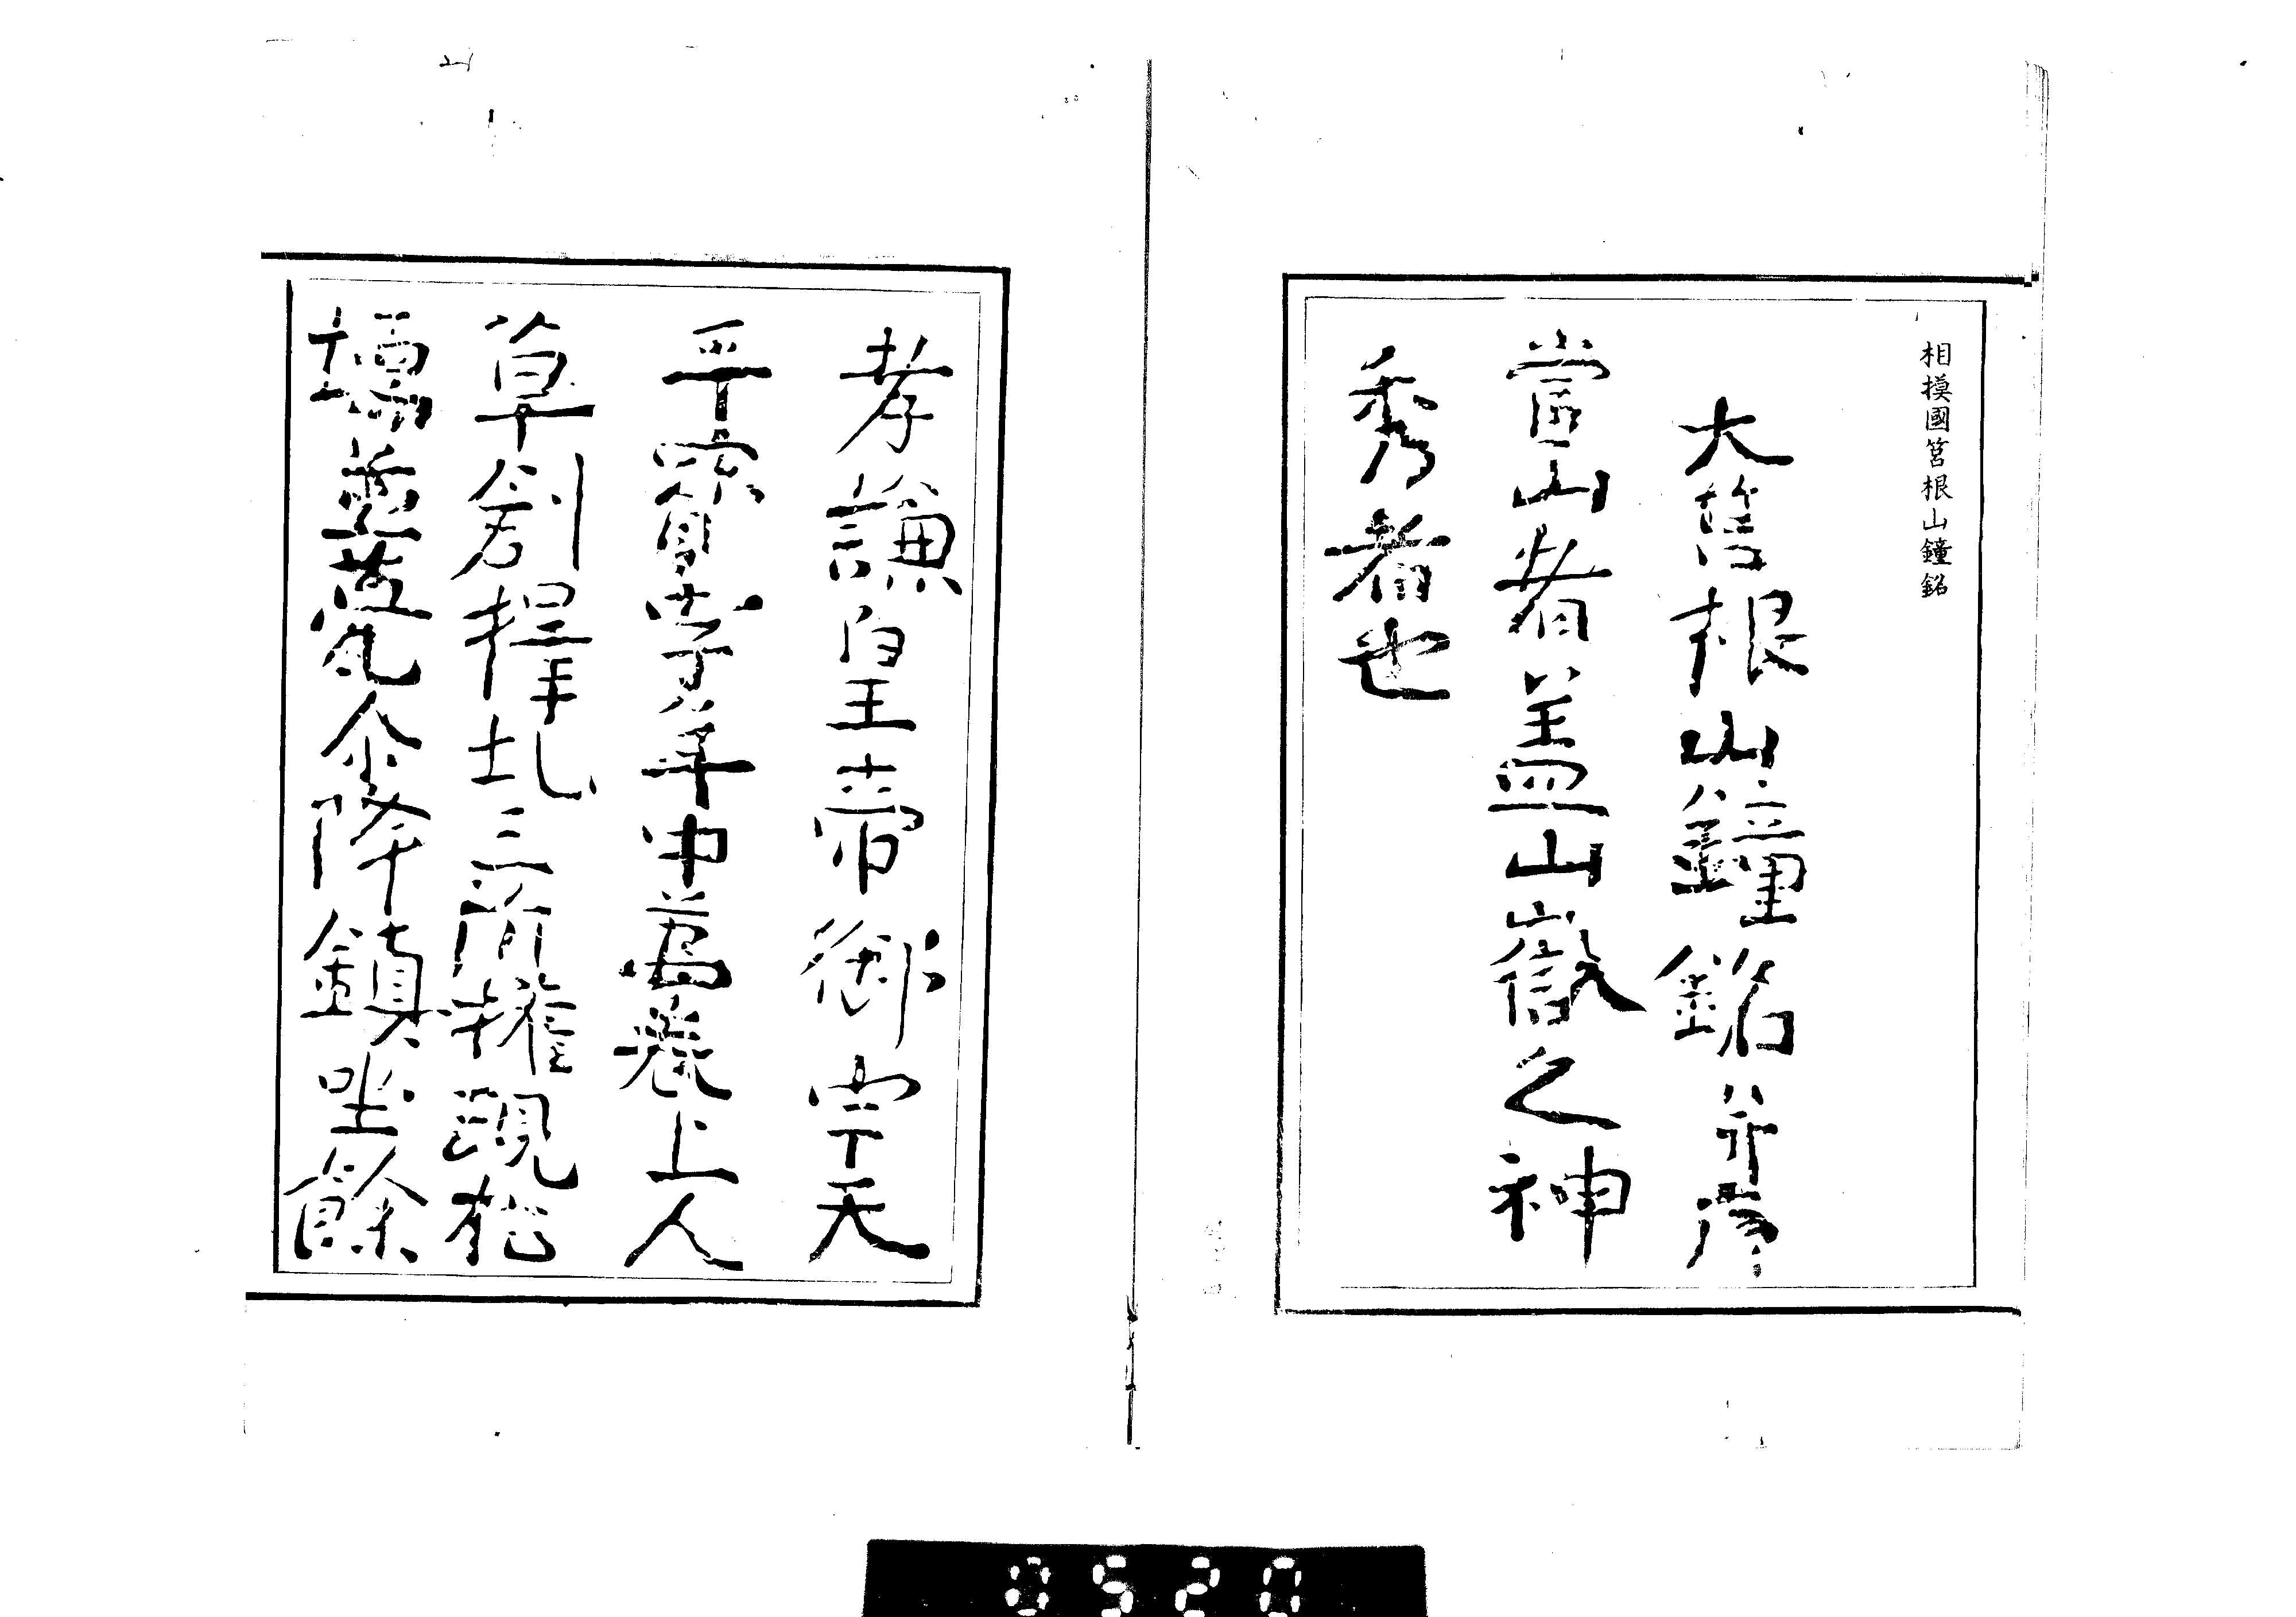 相摸國筥根山鐘銘
大筥根山鐘銘并序
當山者蓋山嶽之神
秀者也
孝謙皇帝御宇天
平寶字年中萬巻上人
草創擇地三所權現
降鎮坐餘
0520